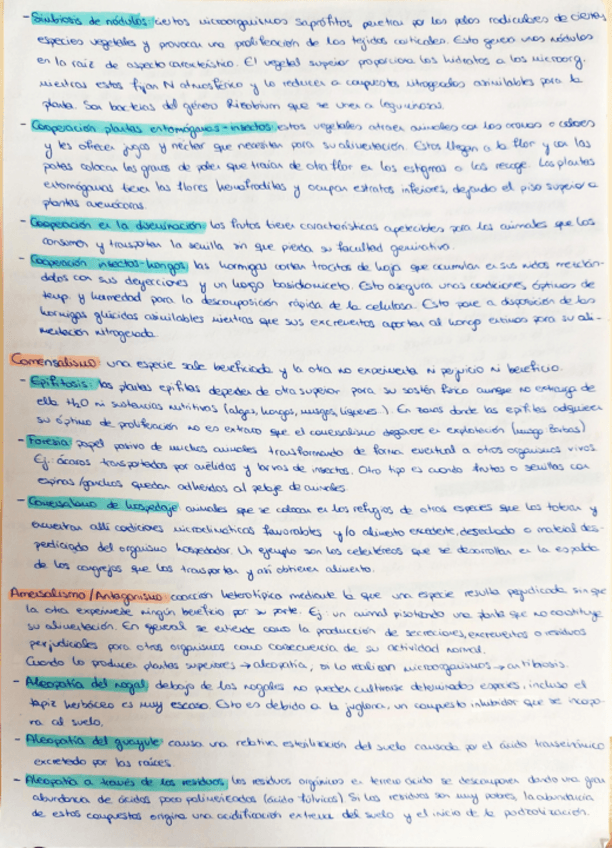 - Simbiosis de nódulos: ciertos microorganismos saprófitos penetran por los pelos radiculares de ciertas
especies vegetales y provocan una proliferación de los tejidos corticales. Esto genera unos nódulos
en la raíz de aspecto característico. El vegetal superior proporciona los hidratos a los microorg.
mientras estos fijan N atmosférico y lo reducen a compuestos nitrogenados asimilables para la
planta. Son bacterias del género Rizobium que se unen a leguminosas.
- Cooperación plantas entomógamas-insectos: estos vegetales atraen animales con los aromas o colores
y les ofrecen jugos y néctar que necesitan para su alimentación. Estos llegan a la flor y con las
patas colocan los granos de polen que traían de otra flor en los estigmas o los recoge. Las plantas
entomógamas tienen las flores hermafroditas y ocupan estratos inferiores, dejando el piso superior a
plantas anemócoras.
- Cooperación en la diseminación: los frutos tienen características apetecibles para los animales que los
consumen y transportan la semilla sin que pierda su facultad germinativa.
- Cooperación insectos-hongos: las hormigas cortan trocitos de hoja que acumulan en sus nidos mezclán-
dolos con sus deyecciones y un hongo basidiomiceto. Esto asegura unas condiciones óptimas de
temp. y humedad para la descomposición rápida de la celulosa. Esto pone a disposición de las
hormigas glúcidos asimilables mientras que sus excrementos aportan al hongo para su ali-
mentación nitrogenada.
Comensalismo: una especie sale beneficiada y la otra no experimenta ni perjuicio ni beneficio.
- Epifitosis: las plantas epífitas dependen de otra superior para su sostén físico aunque no extraiga de
ella H2O ni sustancias nutritivas (algas, hongos, musgos, líquenes..). En zonas donde las epífitas adquieren
su óptimo de proliferación no es extraño que el comensalismo degenere en explotación (musgo barbas)
- Foresia: papel pasivo de muchos animales transformando de forma eventual a otros organismos vivos.
Ej: ácaros transportados por anélidos y larvas de insectos. Otro tipo es cuando frutos o semillas con
espinas/ganchos quedan adheridos al pelaje de animales.
- Comensalismo de hospedaje: animales que se colocan en los refugios de otras especies que los toleran y
encuentran allí condiciones microclimáticas favorables y/o alimento excedente, desechado o material des-
perdiciado del organismo hospedador. Un ejemplo son los celentéreos que se desarrollan en la espalda
de los cangrejos que los transportan y así obtienen alimento.
Amensalismo/Antagonismo: coacción heterotípica mediante la que una especie resulta perjudicada sin que
la otra experimente ningún beneficio por su parte. Ej: un animal pisoteando una planta que no constituye
su alimentación. En general se entiende como la producción de secreciones, excrementos o residuos
perjudiciales para otros organismos como consecuencia de su actividad normal.
Cuando lo producen plantas superiores → aleopatía, si lo realizan microorganismos → antibiosis.
- Aleopatía del nogal: debajo de los nogales no pueden cultivarse determinadas especies, incluso el
tapiz herbáceo es muy escaso. Esto es debido a la juglona, un compuesto inhibidor que se incopo-
ra al suelo.
- Aleopatía del guayule: causa una relativa esterilización del suelo causada por el ácido transcinámico
excretado por las raíces.
- Aleopatía a través de los residuos: los residuos orgánicos en terreno ácido se descomponen dando una gran
abundancia de ácidos poco polimerizados (ácido fúlvicos). Si los residuos son muy pobres, la abundancia
de estos compuestos origina una acidificación extrema del suelo y el inicio de la podzolización.